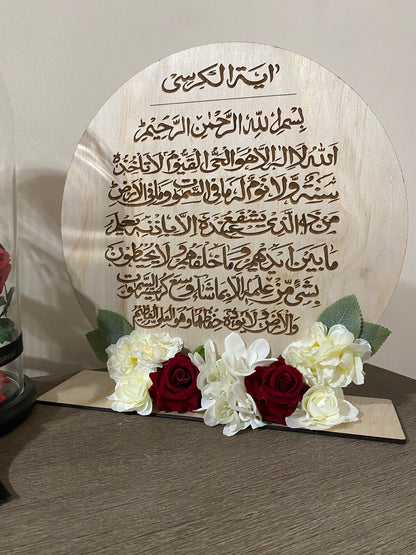 اية الكرسي
بسم الله الرحمن الرحيم
الله لا اله الا هو الحي القيوم لا تاخذه
سنة ولا نوم له ما في السموت وما في الارض
من ذا الذي يشفع عنده الا باذنه يعلم
ما بين ايديهم وما خلفهم ولا يحيطون
بشيء من علمه الا بما شاء وسع كرسيه السموت
والارض ولا يوده حفظهما وهو العلي العظيم